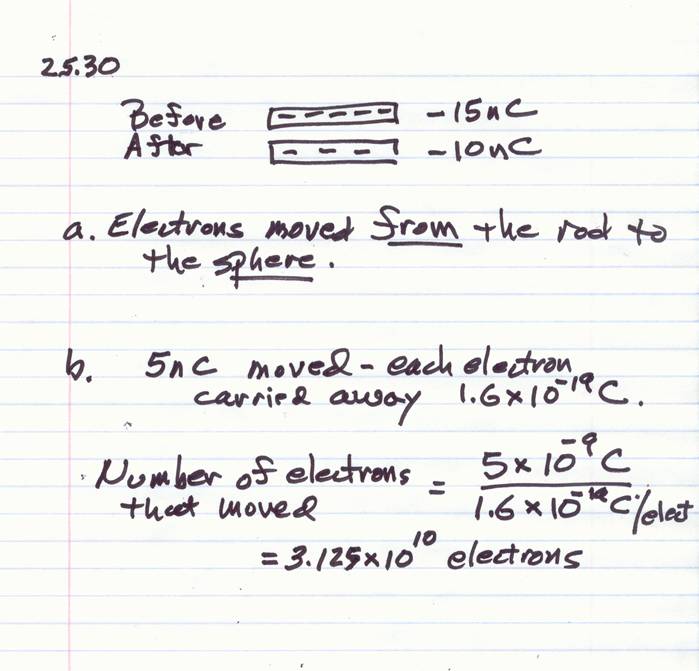 25.30
Before - - - - - -15nC
After - - - -10nC
a. Electrons moved from the rod to
the sphere.
b. 5nC moved - each electron
carried away 1.6×10⁻¹⁹C.
Number of electrons = 5×10⁻⁹C
that moved 1.6×10⁻¹⁹C/elect
= 3.125×10¹⁰ electrons